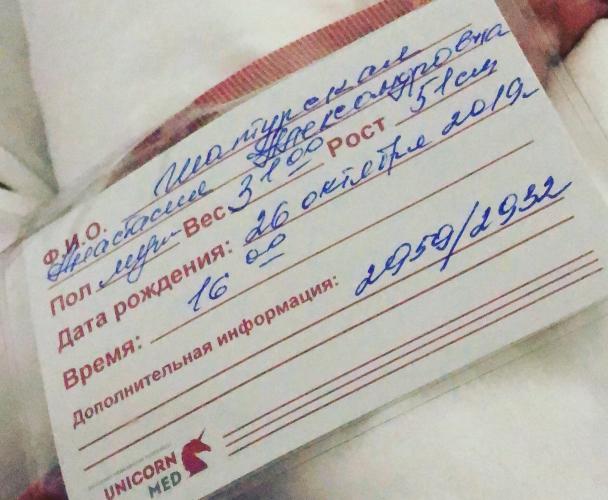 Ф.И.О. Шатурская
Анастасия Александровна
Пол муж Вес 3100 Рост 51см
Дата рождения: 26 октября 2019г
Время: 16 00
Дополнительная информация: 2959/2932
UNICORN
MED